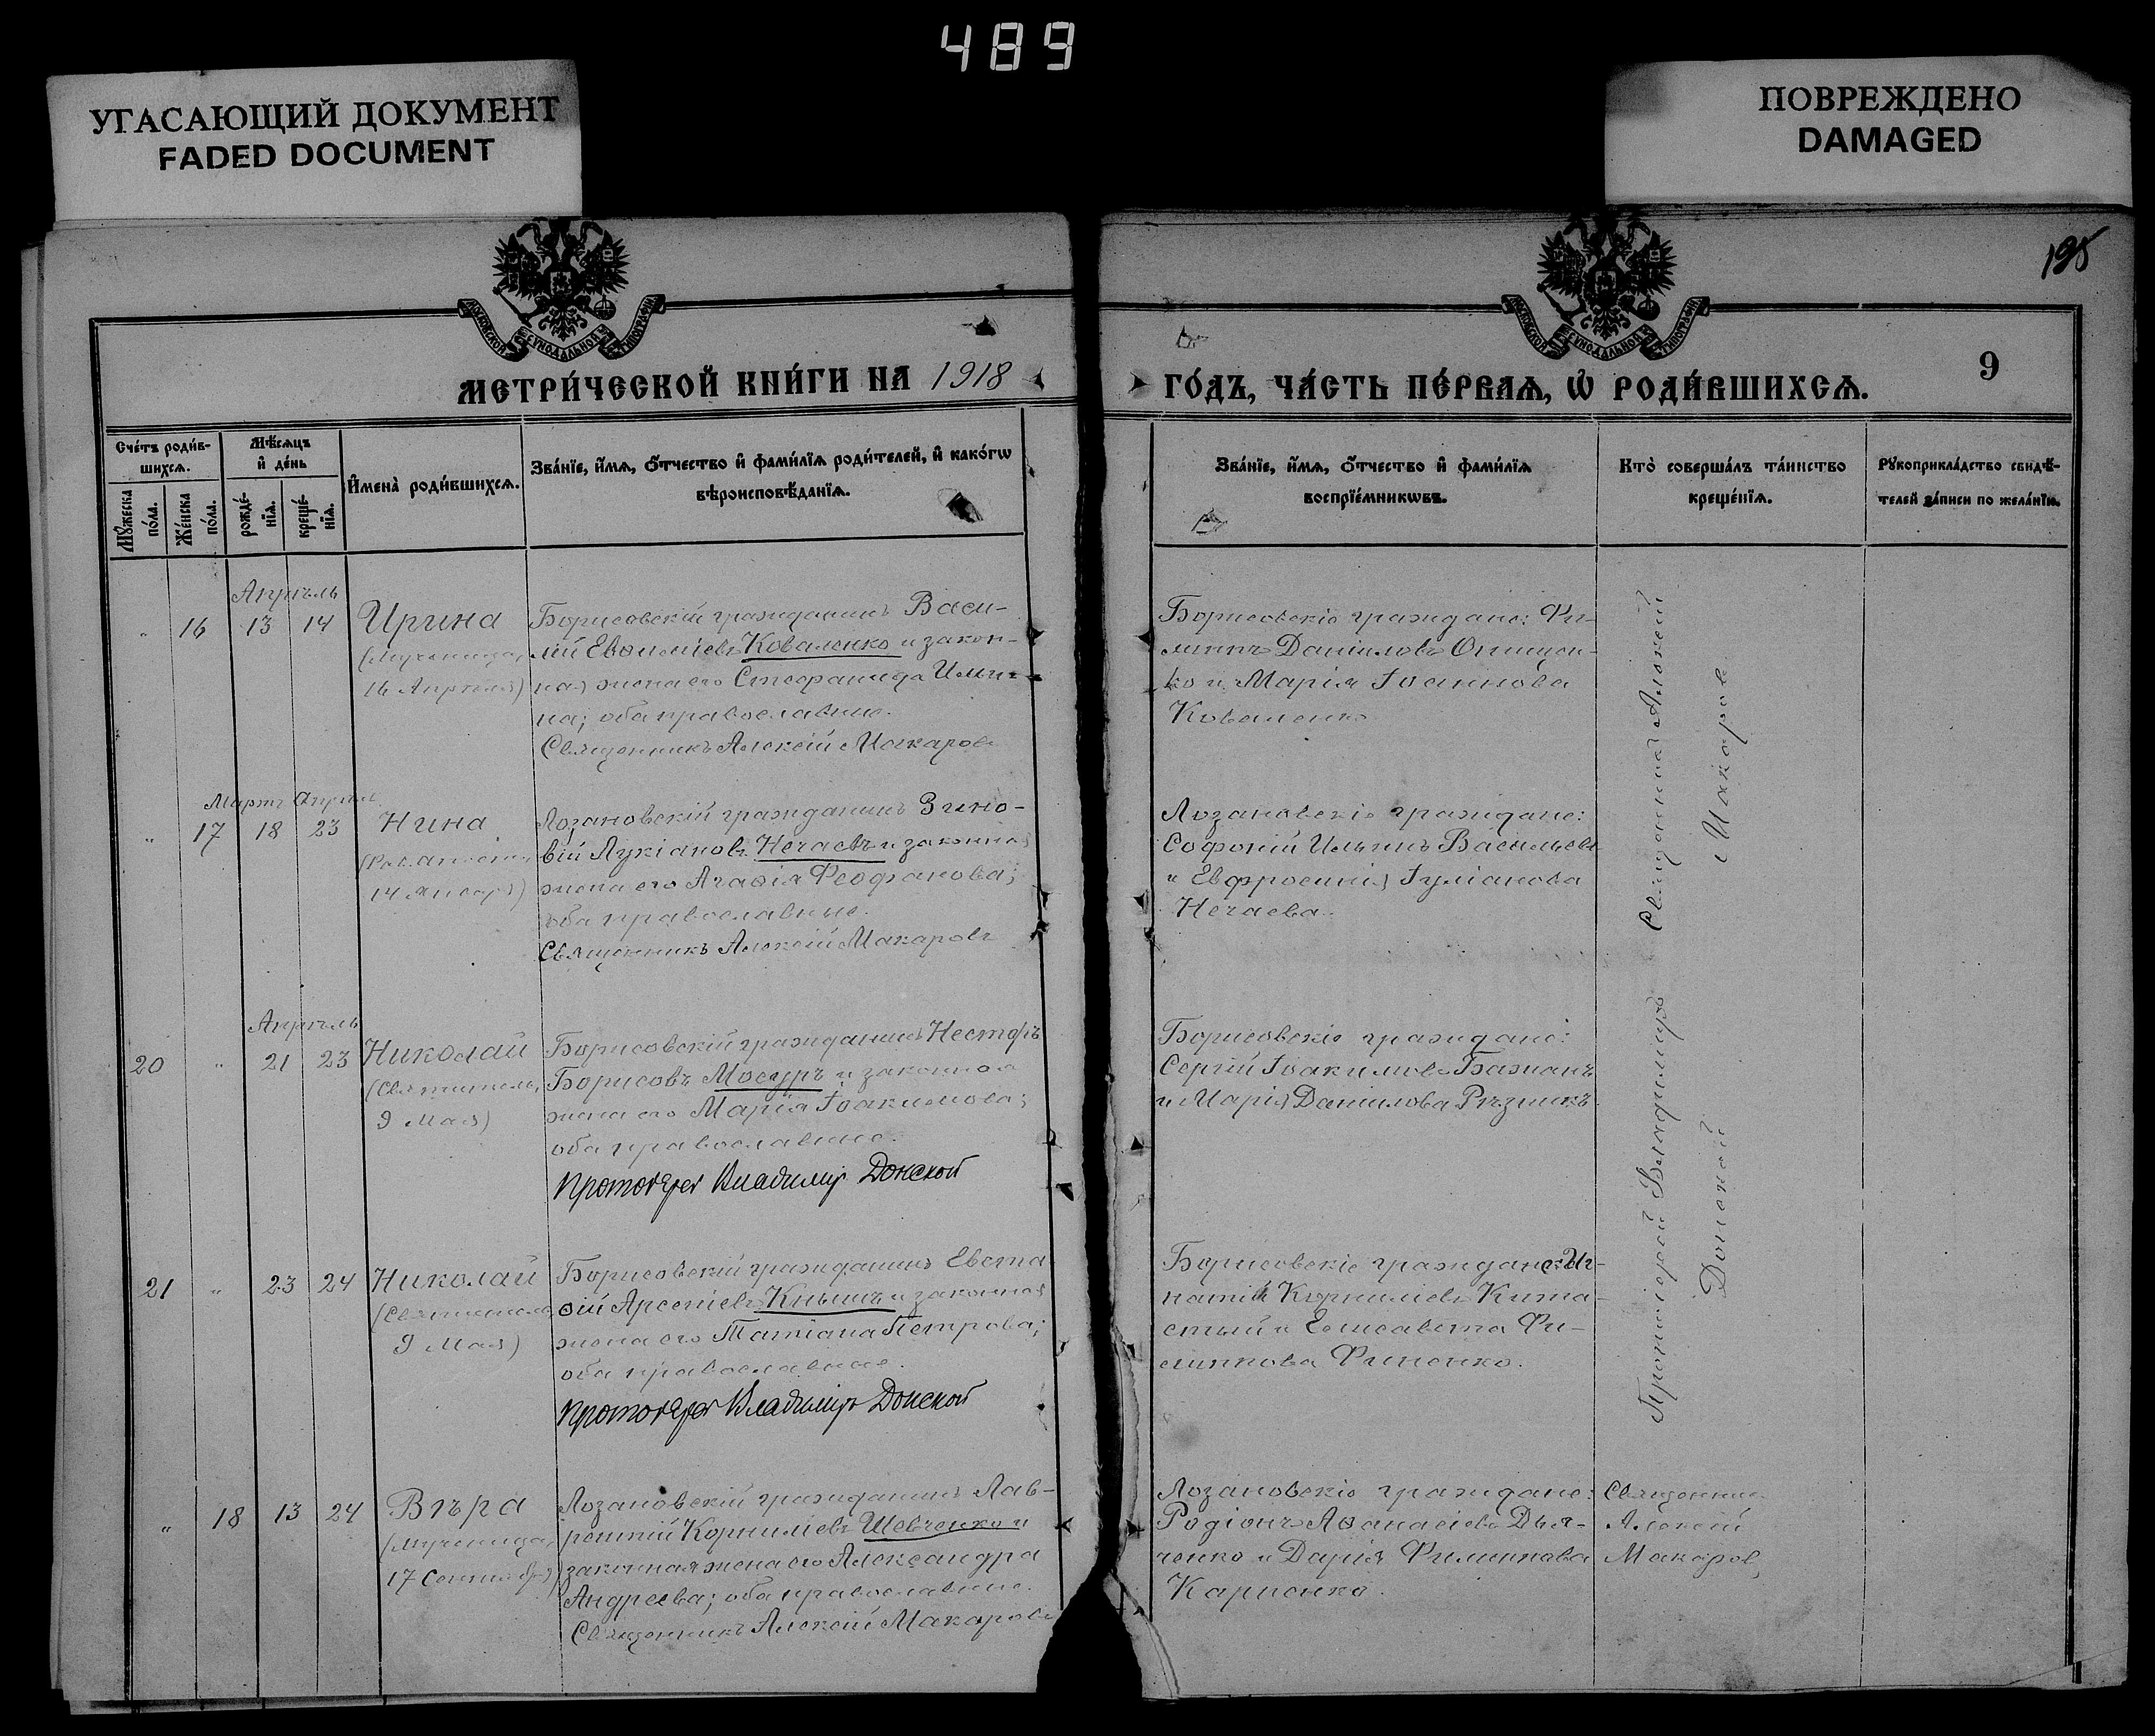 489
УГАСАЮЩИЙ ДОКУМЕНТ
FADED DOCUMENT
ПОВРЕЖДЕНО
DAMAGED
195
МОСКОВСКОЙ СѴНОДАЛЬНОЙ ТИПОГРАФІИ
МОСКОВСКОЙ СѴНОДАЛЬНОЙ ТИПОГРАФІИ
МЕТРИ́ЧЕСКОЙ КНИ́ГИ НА 1918
ГО́ДЪ, ЧА́СТЬ ПЕ́РВАѦ, Ѡ҆ РОДИ́ВШИХСѦ.
9
Сче́тъ роди́в-
шихсѧ.
Мꙋ́жеска по́ла.
Же́нска по́ла.
Мѣ́сѧцъ
и҆ де́нь
рожде́-
нїѧ.
креще́-
нїѧ.
И҆мена̀ роди́вшихсѧ.
Зва́нїе, и҆́мѧ, ѻ҆́тчество и҆ фами́лїѧ роди́телей, и҆ како́гѡ
вѣроисповѣ́данїѧ.
Зва́нїе, и҆́мѧ, ѻ҆́тчество и҆ фами́лїѧ
воспрїе́мникѡвъ.
Кто̀ соверша́лъ та́инство
креще́нїѧ.
Рꙋкоприкла́дство свидѣ́-
телей за́писи по жела́нїю.
Апрѣль
" 16 13 14
Ирина
(мученица,
16 Апрѣля)
Борисовскій гражданинъ Васи-
лій Евѳиміевъ Коваленко и закон-
ная жена его Стефанида Ильи-
на; оба православные.
Священникъ Алексій Макаровъ
Борисовскіе граждане: Фи-
липпъ Даніиловъ Онищен-
ко и Марія Іоаннова
Коваленко
Мартъ Апрѣль
" 17 18 23
Нина
14 Января)
Лозановскій гражданинъ Зино-
вій Лукіановъ Нечаевъ и законная
жена его Агаѳія Феофанова;
оба православные.
Священникъ Алексій Макаровъ
Лозановскіе граждане:
Софоній Ильинъ Васильевъ
и Евфросинія Іуліанова
Нечаева.
Священникъ Алексій
Макаровъ
Апрѣль
20 " 21 23
Николай
(Святитель,
9 Мая)
Борисовскій гражданинъ Несторъ
Борисовъ Мосуръ и законная
жена его Марія Іоакимова;
оба православные.
Протоіерей Владиміръ Донской
Борисовскіе граждане:
Сергій Іоакимовъ Бажанъ
и Марія Даніилова Рѣзникъ
21 " 23 24
Николай
(Святитель,
9 Мая)
Борисовскій гражданинъ Евста-
ѳій Арсеніевъ Кнышъ и законная
жена его Татіана Петрова;
оба православные.
Протоіерей Владиміръ Донской
Борисовскіе граждане: Иг-
натій Корниліевъ
и Елисавета Фи-
липпова
Протоіерей Владиміръ
Донской
" 18 13 24
Вѣра
(мученица,
17 Сентября)
Лозановскій гражданинъ Лав-
рентій Корниліевъ Шевченко и
законная жена его Александра
Андреева; оба православные.
Священникъ Алексій Макаровъ
Лозановскіе граждане:
Родіонъ Аѳанасіевъ Дья-
ченко и Дарія Филиппова
Карпенко.
Священникъ
Алексій
Макаровъ